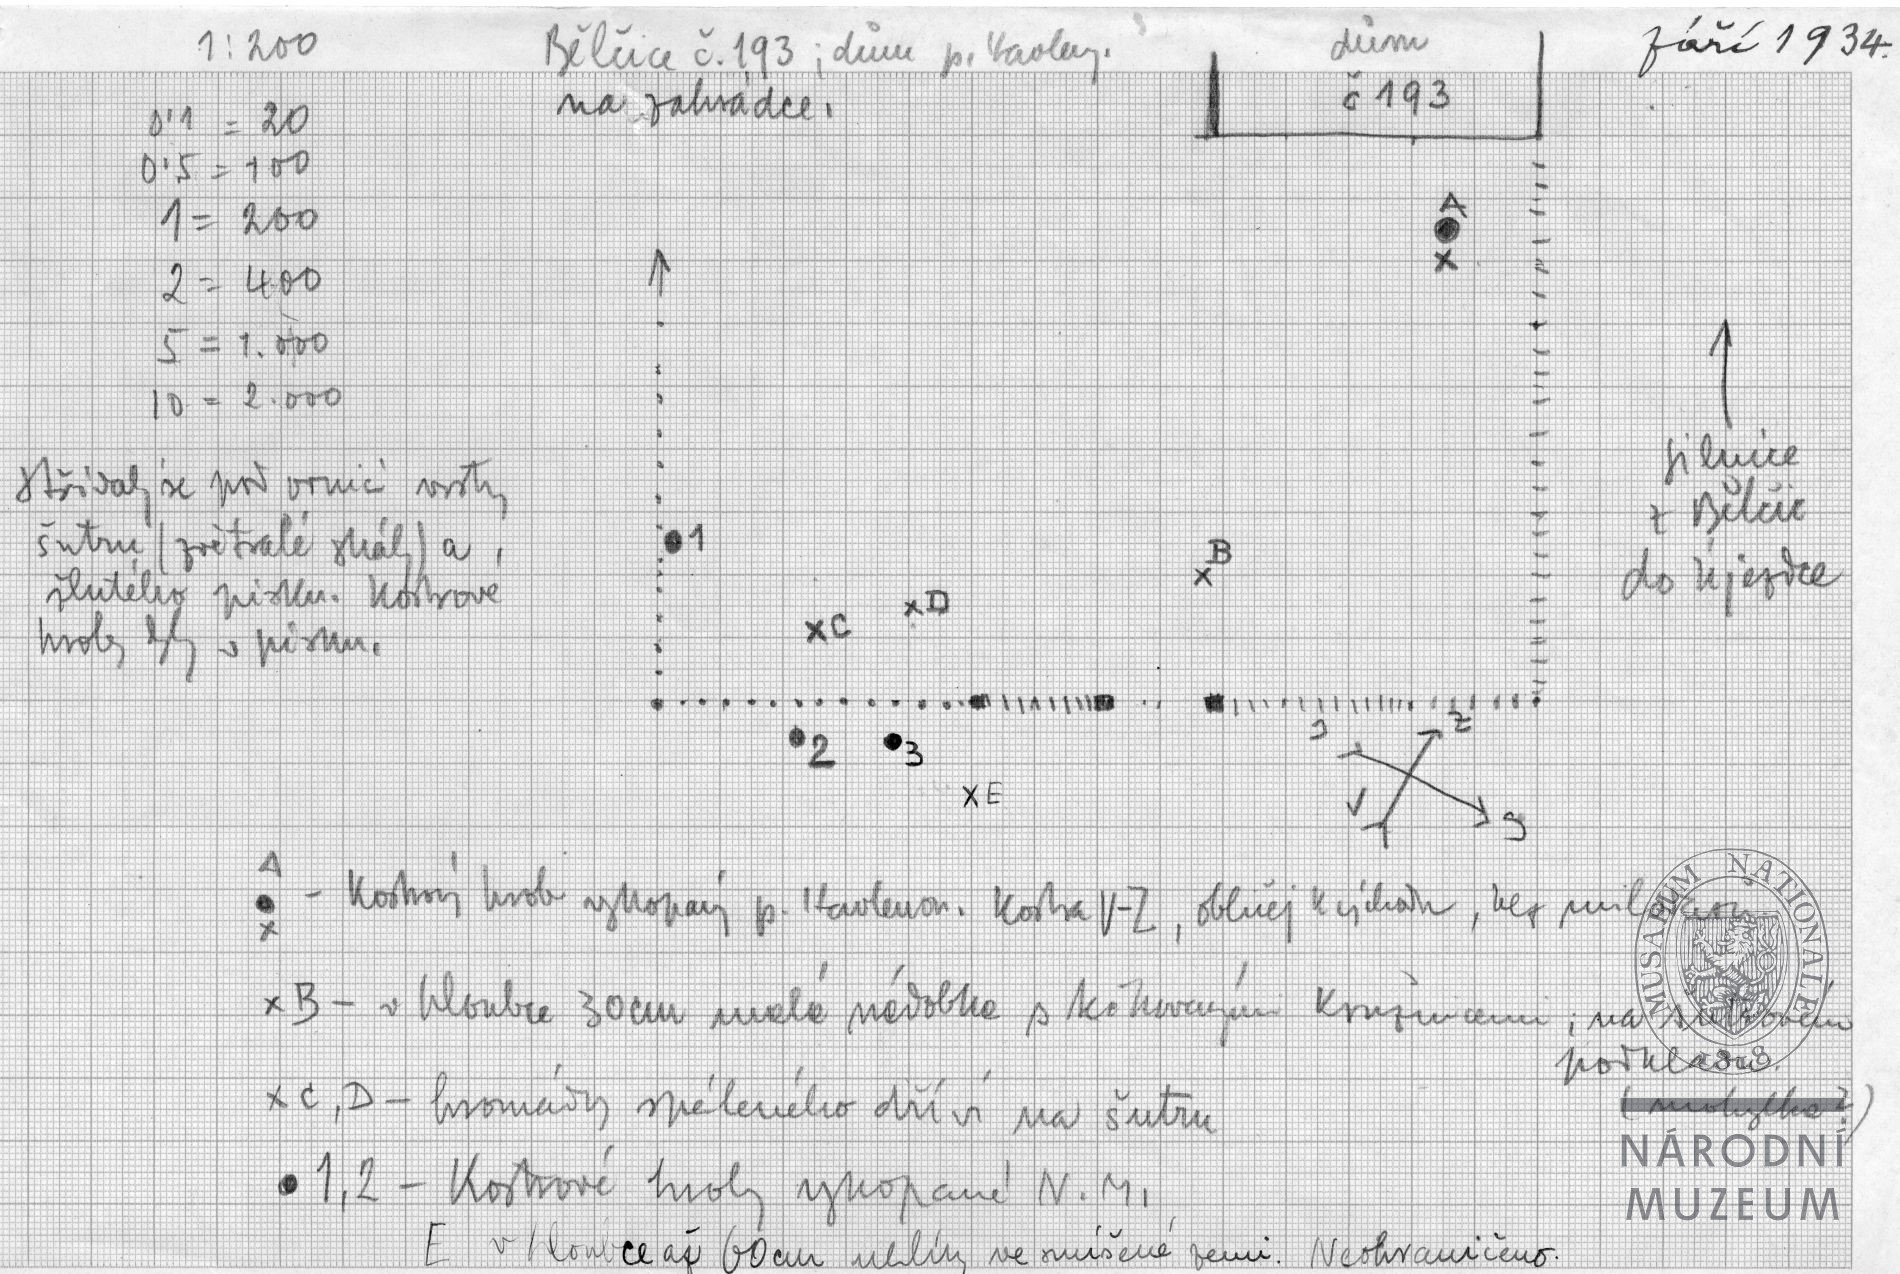 1:200
Bělčice č. 193; dům p.
na zahrádce.
dům
č 193
září 1934.
0'1 = 20
0'5 = 100
1 = 200
2 = 400
5 = 1.000
10 = 2.000
A
x
Střídaly se pod ornicí vrstvy
šutru (zvětralé skály) a
žlutého písku. Kostrové
hroby byly v písku.
1
x B
x C
x D
silnice
z Bělčic
do Újezdce
2
3
x E
S
Z
V
J
A
x
- Kostrový hrob vykopaný p. Kostra V-Z, obličej k východu, bez
x B - v hloubce 30cm malá nádobka s kolkovanými kružnicemi; na šutrovém
podkladu.
(mohylka?)
x C, D - hromády spáleného dříví na šutru
1, 2 - Kostrové hroby vykopané N.M.
E v hloubce až 60cm uhlíky ve smíšené zemi. Neohraničeno.
MUSAEUM NATIONALE
1818
NÁRODNÍ
MUZEUM